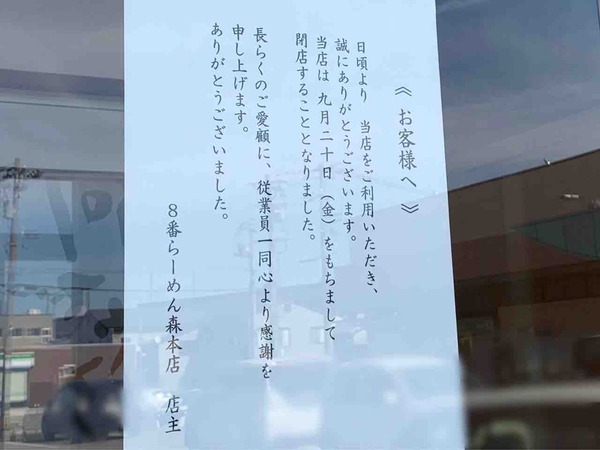 《 お客様へ 》
日頃より 当店をご利用いただき、
誠にありがとうございます。
当店は 九月二十日（金）をもちまして
閉店することとなりました。
長らくのご愛顧に、従業員一同心より感謝を
申し上げます。
ありがとうございました。
８番らーめん森本店 店主